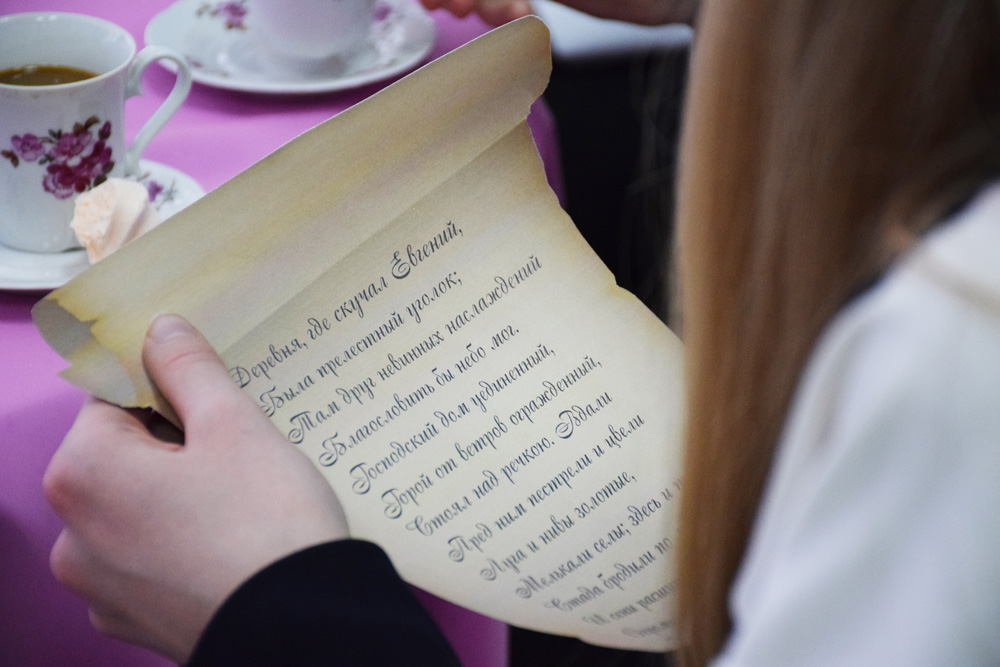 Деревня, где скучал Евгений,
Была прелестный уголок;
Там друг невинных наслаждений
Благословить бы небо мог.
Господский дом уединенный,
Горой от ветров огражденный,
Стоял над речкою. Вдали
Пред ним пестрели и цвели
Луга и нивы золотые,
Мелькали селы; здесь и
Стада бродили по
И сени